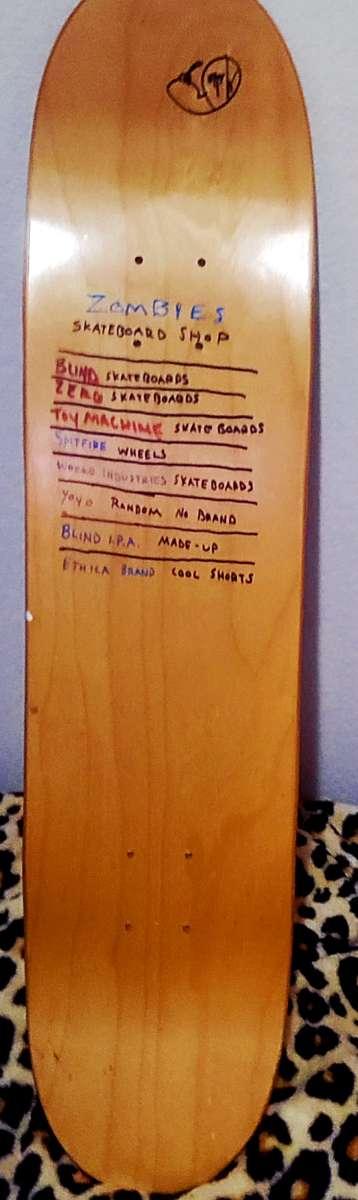 ZOMBYES
SKATEBOARD SHOP
BLIND SKATEBOARDS
ZERO SKATEBOARDS
TOY MACHINE SKATE BOARDS
SPITFIRE WHEELS
WORLD INDUSTRIES SKATEBOARDS
YOYO RANDOM NO BRAND
BLIND I.P.A. MADE-UP
ETHICA BRAND COOL SHORTS